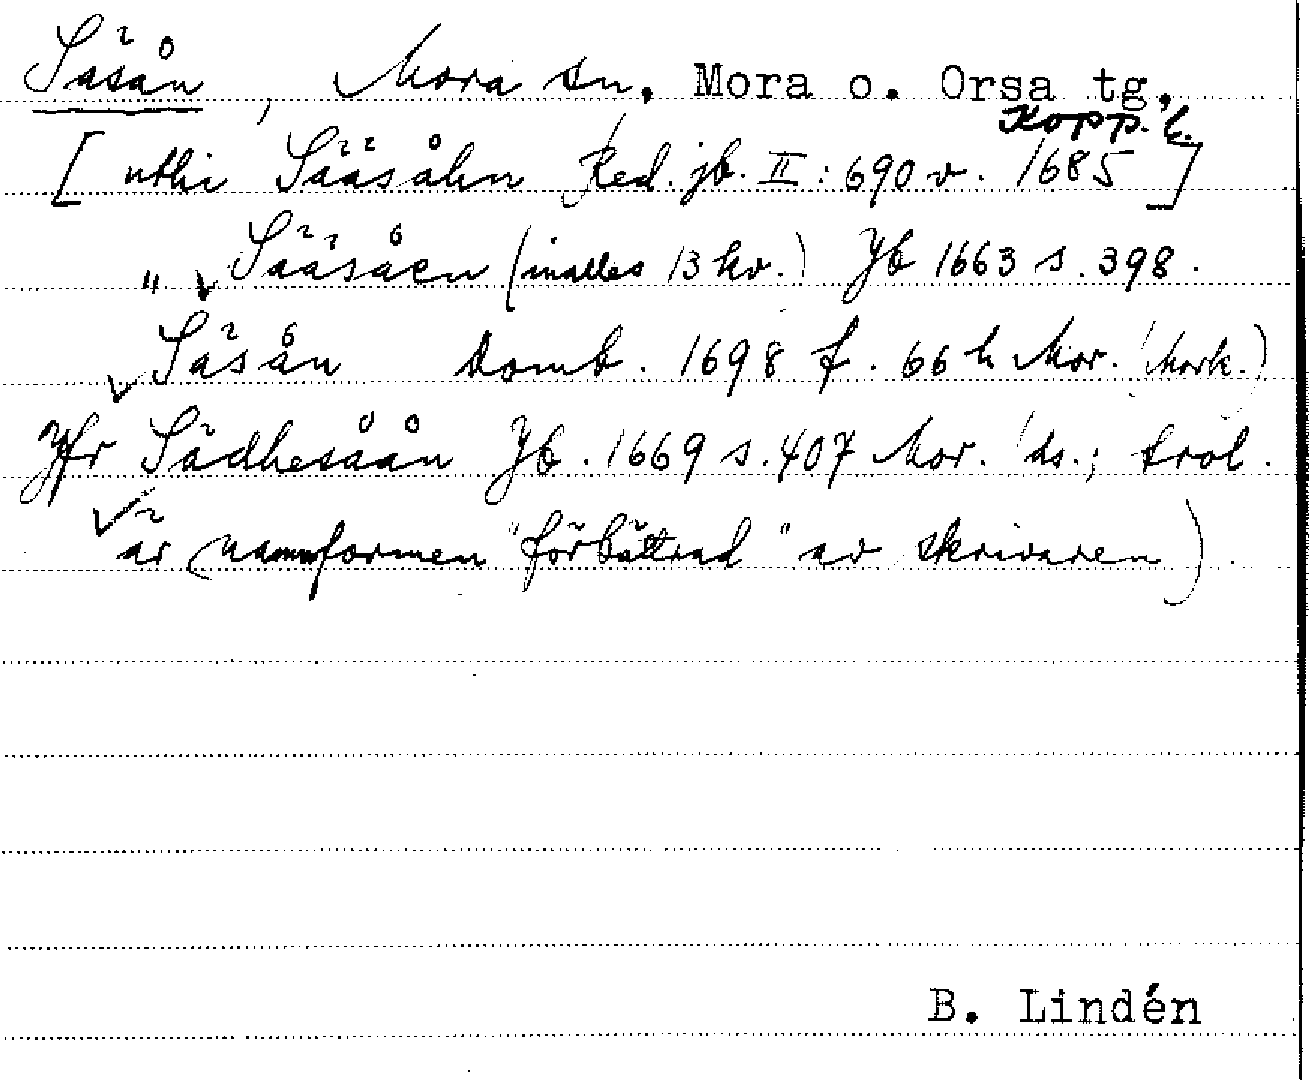 Säsån, Mora sn, Mora o. Orsa tg,
Kopp. l.
[ uthi Sääsåhn Red. jb. II: 690 v. 1685 ]
" Sääsåen (inalles 13 kv.) Jb 1663 s. 398.
Säsån Domb. 1698 f. 66 h Mor. (Mork.)
Jfr Sädhesåån Jb. 1669 s. 407 Mor. (ds.; trol.
är namnformen "förbättrad" av skrivaren)
B. Lindén